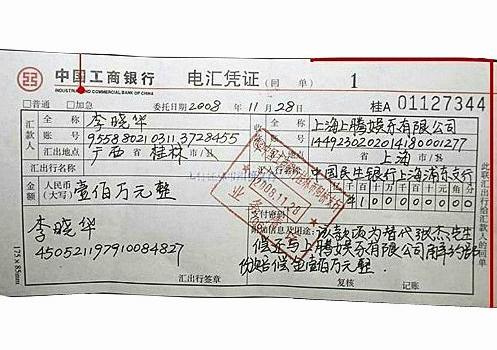 中国工商银行 电汇凭证（回单） 1
INDUSTRIAL AND COMMERCIAL BANK OF CHINA
□普通 □加急 委托日期 2008 年 11 月 28 日 桂A 01127344
汇款人 全称 李晓华 收款人 全称 上海上腾娱乐有限公司
账号 9558802103113728455 账号 1449230202014180001277
汇出地点 广西 省 桂林 市/县 汇入地点 省 上海 市/县
汇出行名称 汇入行名称 中国民生银行上海浦东支行
金额 人民币（大写） 壹佰万元整
2008.11.28
业务
支付密码
李晓华
450521197910084827
附加信息及用途： 该款项为替代张杰先生
与上腾娱乐有限公司解约部
份赔偿金壹佰万元整
汇出行签章 复核 记账
此联汇出行给汇款人的回单
175×85mm